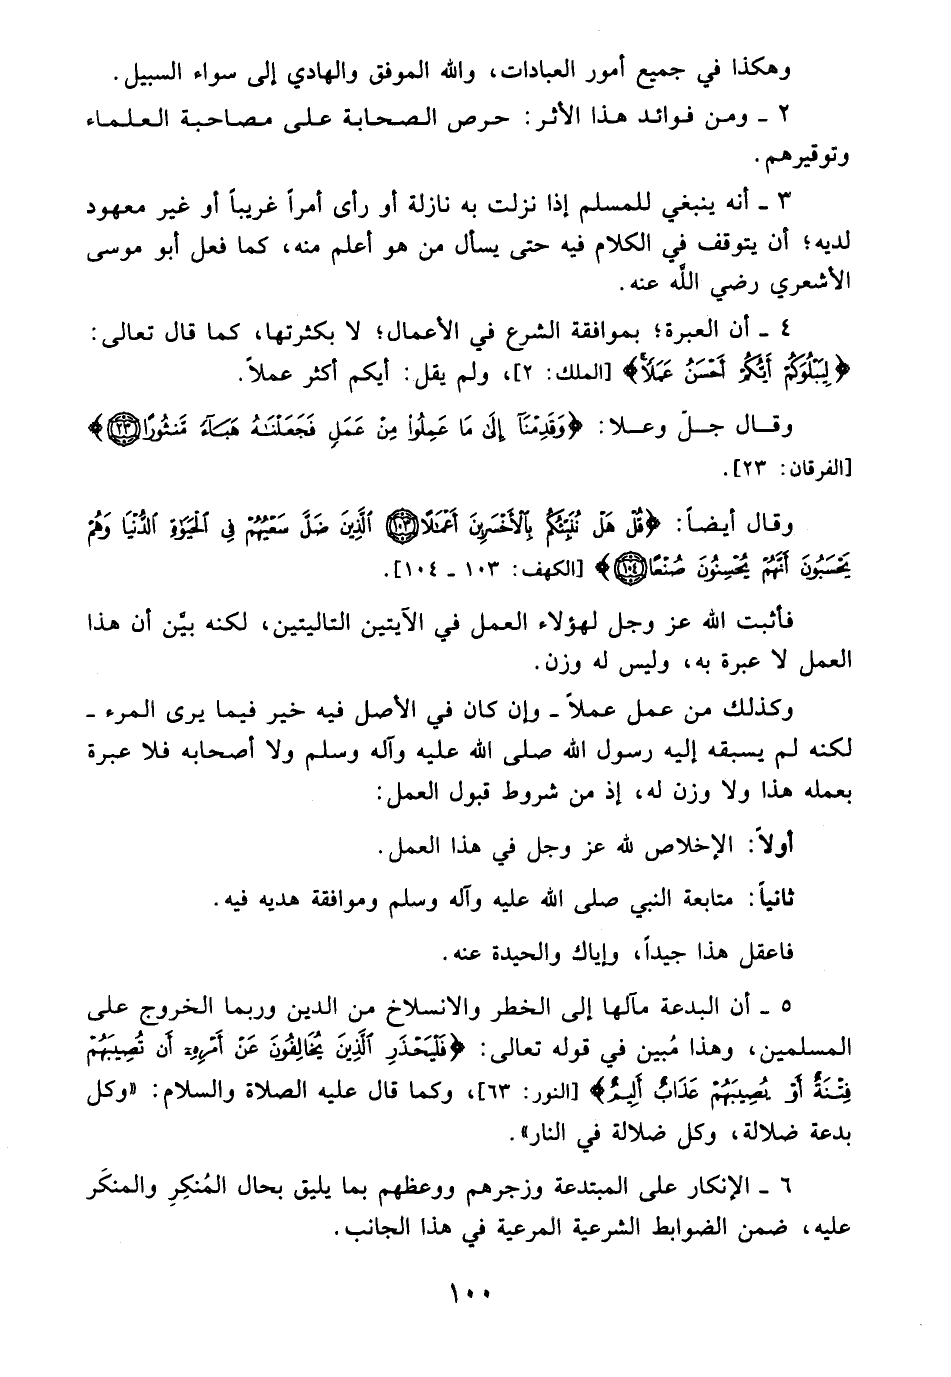 وهكذا في جميع أمور العبادات، والله الموفق والهادي إلى سواء السبيل.
٢ ـ ومن فوائد هذا الأثر: حرص الصحابة على مصاحبة العلماء
وتوقيرهم.
٣ ـ أنه ينبغي للمسلم إذا نزلت به نازلة أو رأى أمراً غريباً أو غير معهود
لديه؛ أن يتوقف في الكلام فيه حتى يسأل من هو أعلم منه، كما فعل أبو موسى
الأشعري رضي اللَّه عنه.
٤ ـ أن العبرة؛ بموافقة الشرع في الأعمال؛ لا بكثرتها، كما قال تعالى:
﴿لِيَبْلُوَكُمْ أَيُّكُمْ أَحْسَنُ عَمَلًا﴾ [الملك: ٢]، ولم يقل: أيكم أكثر عملاً.
وقال جلّ وعلا: ﴿وَقَدِمْنَآ إِلَىٰ مَا عَمِلُوا۟ مِنْ عَمَلٍ فَجَعَلْنَـٰهُ هَبَآءً مَّنثُورًا ٢٣﴾
[الفرقان: ٢٣].
وقال أيضاً: ﴿قُلْ هَلْ نُنَبِّئُكُم بِٱلْأَخْسَرِينَ أَعْمَـٰلًا ١٠٣ ٱلَّذِينَ ضَلَّ سَعْيُهُمْ فِى ٱلْحَيَوٰةِ ٱلدُّنْيَا وَهُمْ
يَحْسَبُونَ أَنَّهُمْ يُحْسِنُونَ صُنْعًا ١٠٤﴾ [الكهف: ١٠٣ ـ ١٠٤].
فأثبت الله عز وجل لهؤلاء العمل في الآيتين التاليتين، لكنه بيَّن أن هذا
العمل لا عبرة به، وليس له وزن.
وكذلك من عمل عملاً ـ وإن كان في الأصل فيه خير فيما يرى المرء ـ
لكنه لم يسبقه إليه رسول الله صلى الله عليه وآله وسلم ولا أصحابه فلا عبرة
بعمله هذا ولا وزن له، إذ من شروط قبول العمل:
أولاً: الإخلاص لله عز وجل في هذا العمل.
ثانياً: متابعة النبي صلى الله عليه وآله وسلم وموافقة هديه فيه.
فاعقل هذا جيداً، وإياك والحيدة عنه.
٥ ـ أن البدعة مآلها إلى الخطر والانسلاخ من الدين وربما الخروج على
المسلمين، وهذا مُبين في قوله تعالى: ﴿فَلْيَحْذَرِ ٱلَّذِينَ يُخَالِفُونَ عَنْ أَمْرِهِۦٓ أَن تُصِيبَهُمْ
فِتْنَةٌ أَوْ يُصِيبَهُمْ عَذَابٌ أَلِيمٌ﴾ [النور: ٦٣]، وكما قال عليه الصلاة والسلام: «وكل
بدعة ضلالة، وكل ضلالة في النار».
٦ ـ الإنكار على المبتدعة وزجرهم ووعظهم بما يليق بحال المُنكِرِ والمنكَر
عليه، ضمن الضوابط الشرعية المرعية في هذا الجانب.
١٠٠